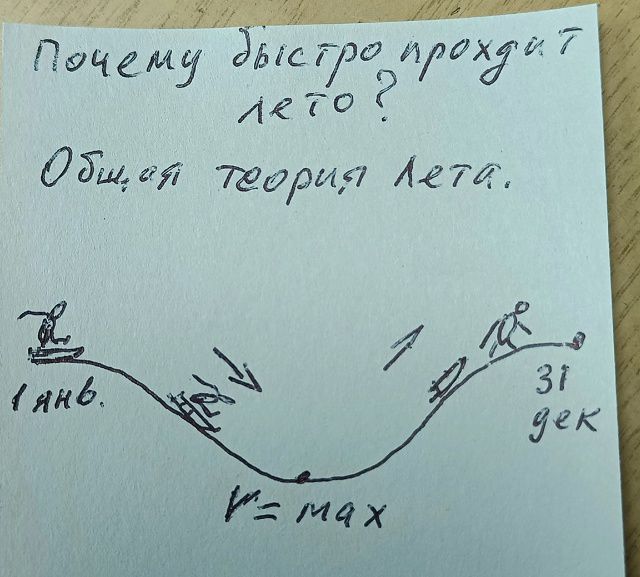 Почему быстро прохдит
лето?
Общая теория лета.
1 янв.
31
дек
V = max